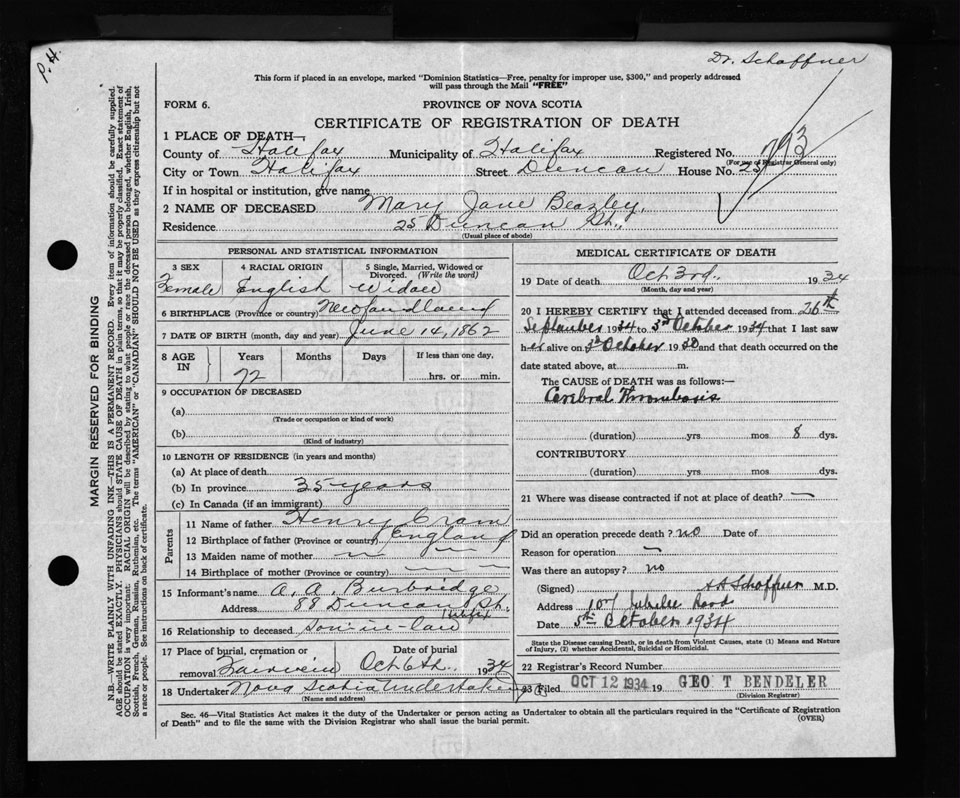 P. H.
Dr. Schaffner
This form if placed in an envelope, marked "Dominion Statistics—Free, penalty for improper use, $300," and properly addressed
will pass through the Mail "FREE"
FORM 6.
PROVINCE OF NOVA SCOTIA
CERTIFICATE OF REGISTRATION OF DEATH
1 PLACE OF DEATH—
County of Halifax Municipality of Halifax Registered No. 793
(For use of Registrar General only)
City or Town Halifax Street Duncan House No. 25
If in hospital or institution, give name
2 NAME OF DECEASED Mary Jane Beazley,
Residence 25 Duncan St.,
(Usual place of abode)
PERSONAL AND STATISTICAL INFORMATION
3 SEX 4 RACIAL ORIGIN 5 Single, Married, Widowed or Divorced. (Write the word)
Female English Widow
6 BIRTHPLACE (Province or country) Newfoundland
7 DATE OF BIRTH (month, day and year) June 14, 1862
8 AGE IN Years Months Days If less than one day,
72 hrs. or min.
9 OCCUPATION OF DECEASED
(a)
(Trade or occupation or kind of work)
(b)
(Kind of industry)
10 LENGTH OF RESIDENCE (in years and months)
(a) At place of death
(b) In province 35 years
(c) In Canada (if an immigrant)
Parents
11 Name of father Henry Cram
12 Birthplace of father (Province or country) England
13 Maiden name of mother — —
14 Birthplace of mother (Province or country) — —
15 Informant's name A. A. Burbridge
Address 88 Duncan St.
Halifax
16 Relationship to deceased son-in-law
17 Place of burial, cremation or removal Date of burial
Fairview Oct 6th 1934
18 Undertaker Nova Scotia Undertaking
(Name and address)
MEDICAL CERTIFICATE OF DEATH
19 Date of death Oct 3rd., 1934
(Month, day and year)
20 I HEREBY CERTIFY that I attended deceased from 26th
September 1934 to 3d October 1934 that I last saw
her alive on 3d October 1930 and that death occurred on the
date stated above, at m.
The CAUSE of DEATH was as follows:—
Cerebral Thrombosis
(duration) yrs mos 8 dys.
CONTRIBUTORY
(duration) yrs. mos. dys.
21 Where was disease contracted if not at place of death? —
Did an operation precede death? no Date of
Reason for operation —
Was there an autopsy? no
(Signed) Schaffner M.D.
Address 107 Jubilee Road
Date 5th October 1934
State the Disease causing Death, or in death from Violent Causes, state (1) Means and Nature
of Injury, (2) whether Accidental, Suicidal or Homicidal.
22 Registrar's Record Number
23 Filed OCT 12 1934 19 GEO T BENDELER
(Division Registrar)
Sec. 46—Vital Statistics Act makes it the duty of the Undertaker or person acting as Undertaker to obtain all the particulars required in the "Certificate of Registration
of Death" and to file the same with the Division Registrar who shall issue the burial permit.
(OVER)
MARGIN RESERVED FOR BINDING
N.B.—WRITE PLAINLY WITH UNFADING INK—THIS IS A PERMANENT RECORD. Every item of information should be carefully supplied.
AGE should be stated EXACTLY. PHYSICIANS should STATE CAUSE OF DEATH in plain terms, so that it may be properly classified. Exact statement of
OCCUPATION is very important. RACIAL ORIGIN will be described by stating to what people or race the deceased person belonged, whether English, Irish,
Scottish, French, German, Russian, Ruthenian, etc. The terms "AMERICAN" or "CANADIAN" SHOULD NOT BE USED as they express citizenship but not
a race or people. See instructions on back of certificate.